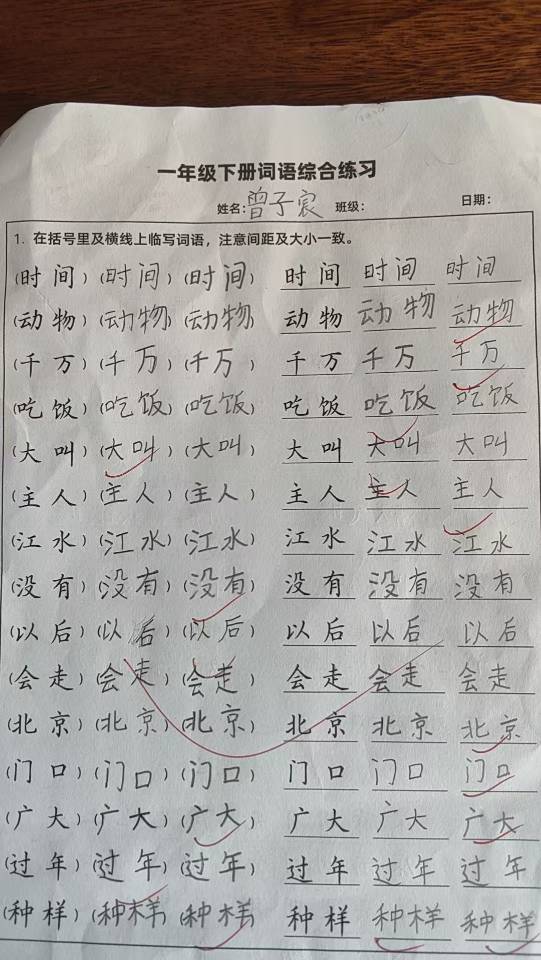 一年级下册词语综合练习
姓名:曾子宸 班级: 日期:
1. 在括号里及横线上临写词语，注意间距及大小一致。
(时 间) (时间) (时间) 时 间 时间 时间
(动 物) (动物) (动物) 动 物 动物 动物
(千 万) (千万) (千万) 千 万 千万 千万
(吃 饭) (吃饭) (吃饭) 吃 饭 吃饭 吃饭
(大 叫) (大叫) (大叫) 大 叫 大叫 大叫
(主 人) (主人) (主人) 主 人 主人 主人
(江 水) (江水) (江水) 江 水 江水 江水
(没 有) (没有) (没有) 没 有 没有 没有
(以 后) (以后) (以后) 以 后 以后 以后
(会 走) (会走) (会走) 会 走 会走 会走
(北 京) (北京) (北京) 北 京 北京 北京
(门 口) (门口) (门口) 门 口 门口 门口
(广 大) (广大) (广大) 广 大 广大 广大
(过 年) (过年) (过年) 过 年 过年 过年
(种 样) (种样) (种样) 种 样 种样 种样